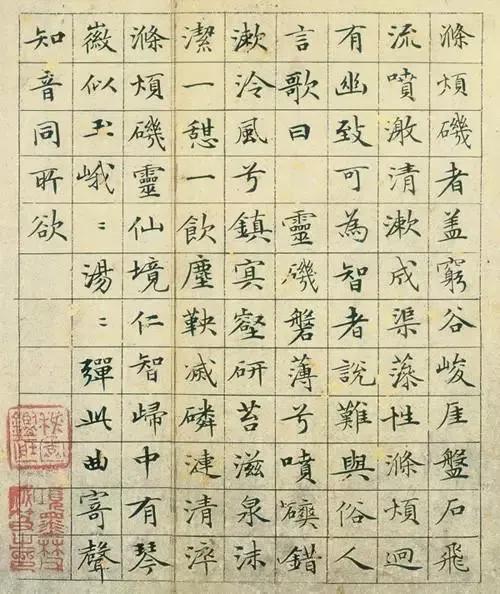 滌煩磯者盖窮谷峻厓盤石飛
流噴激清漱成渠藻性滌煩迥
有幽致可為智者說難與俗人
言歌曰 靈磯磐薄兮噴錯
漱泠風兮鎮冥壑研苔滋泉沫
潔一憇一飲塵鞅滅磷漣清淬
滌煩磯靈仙境仁智歸中有琴
徽似玉峨〻湯〻彈此曲寄聲
知音同所欲
項墨林父秘笈之印